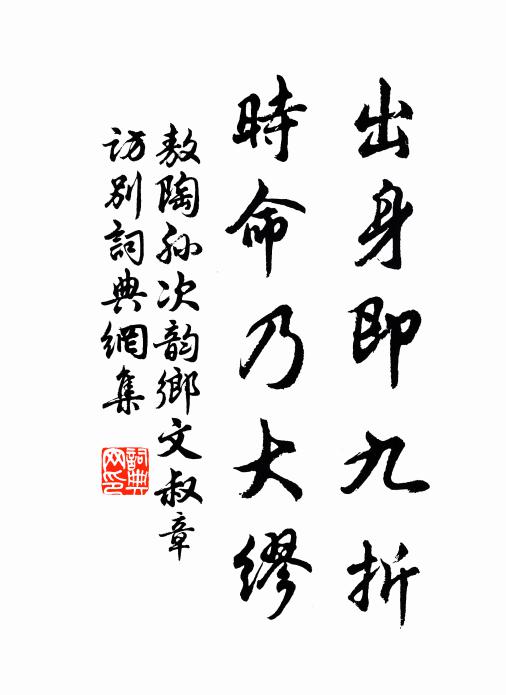 出身即九折
時命乃大繆
敖陶孙次韵鄉文叔章
访别詞典網集
詞典
网印